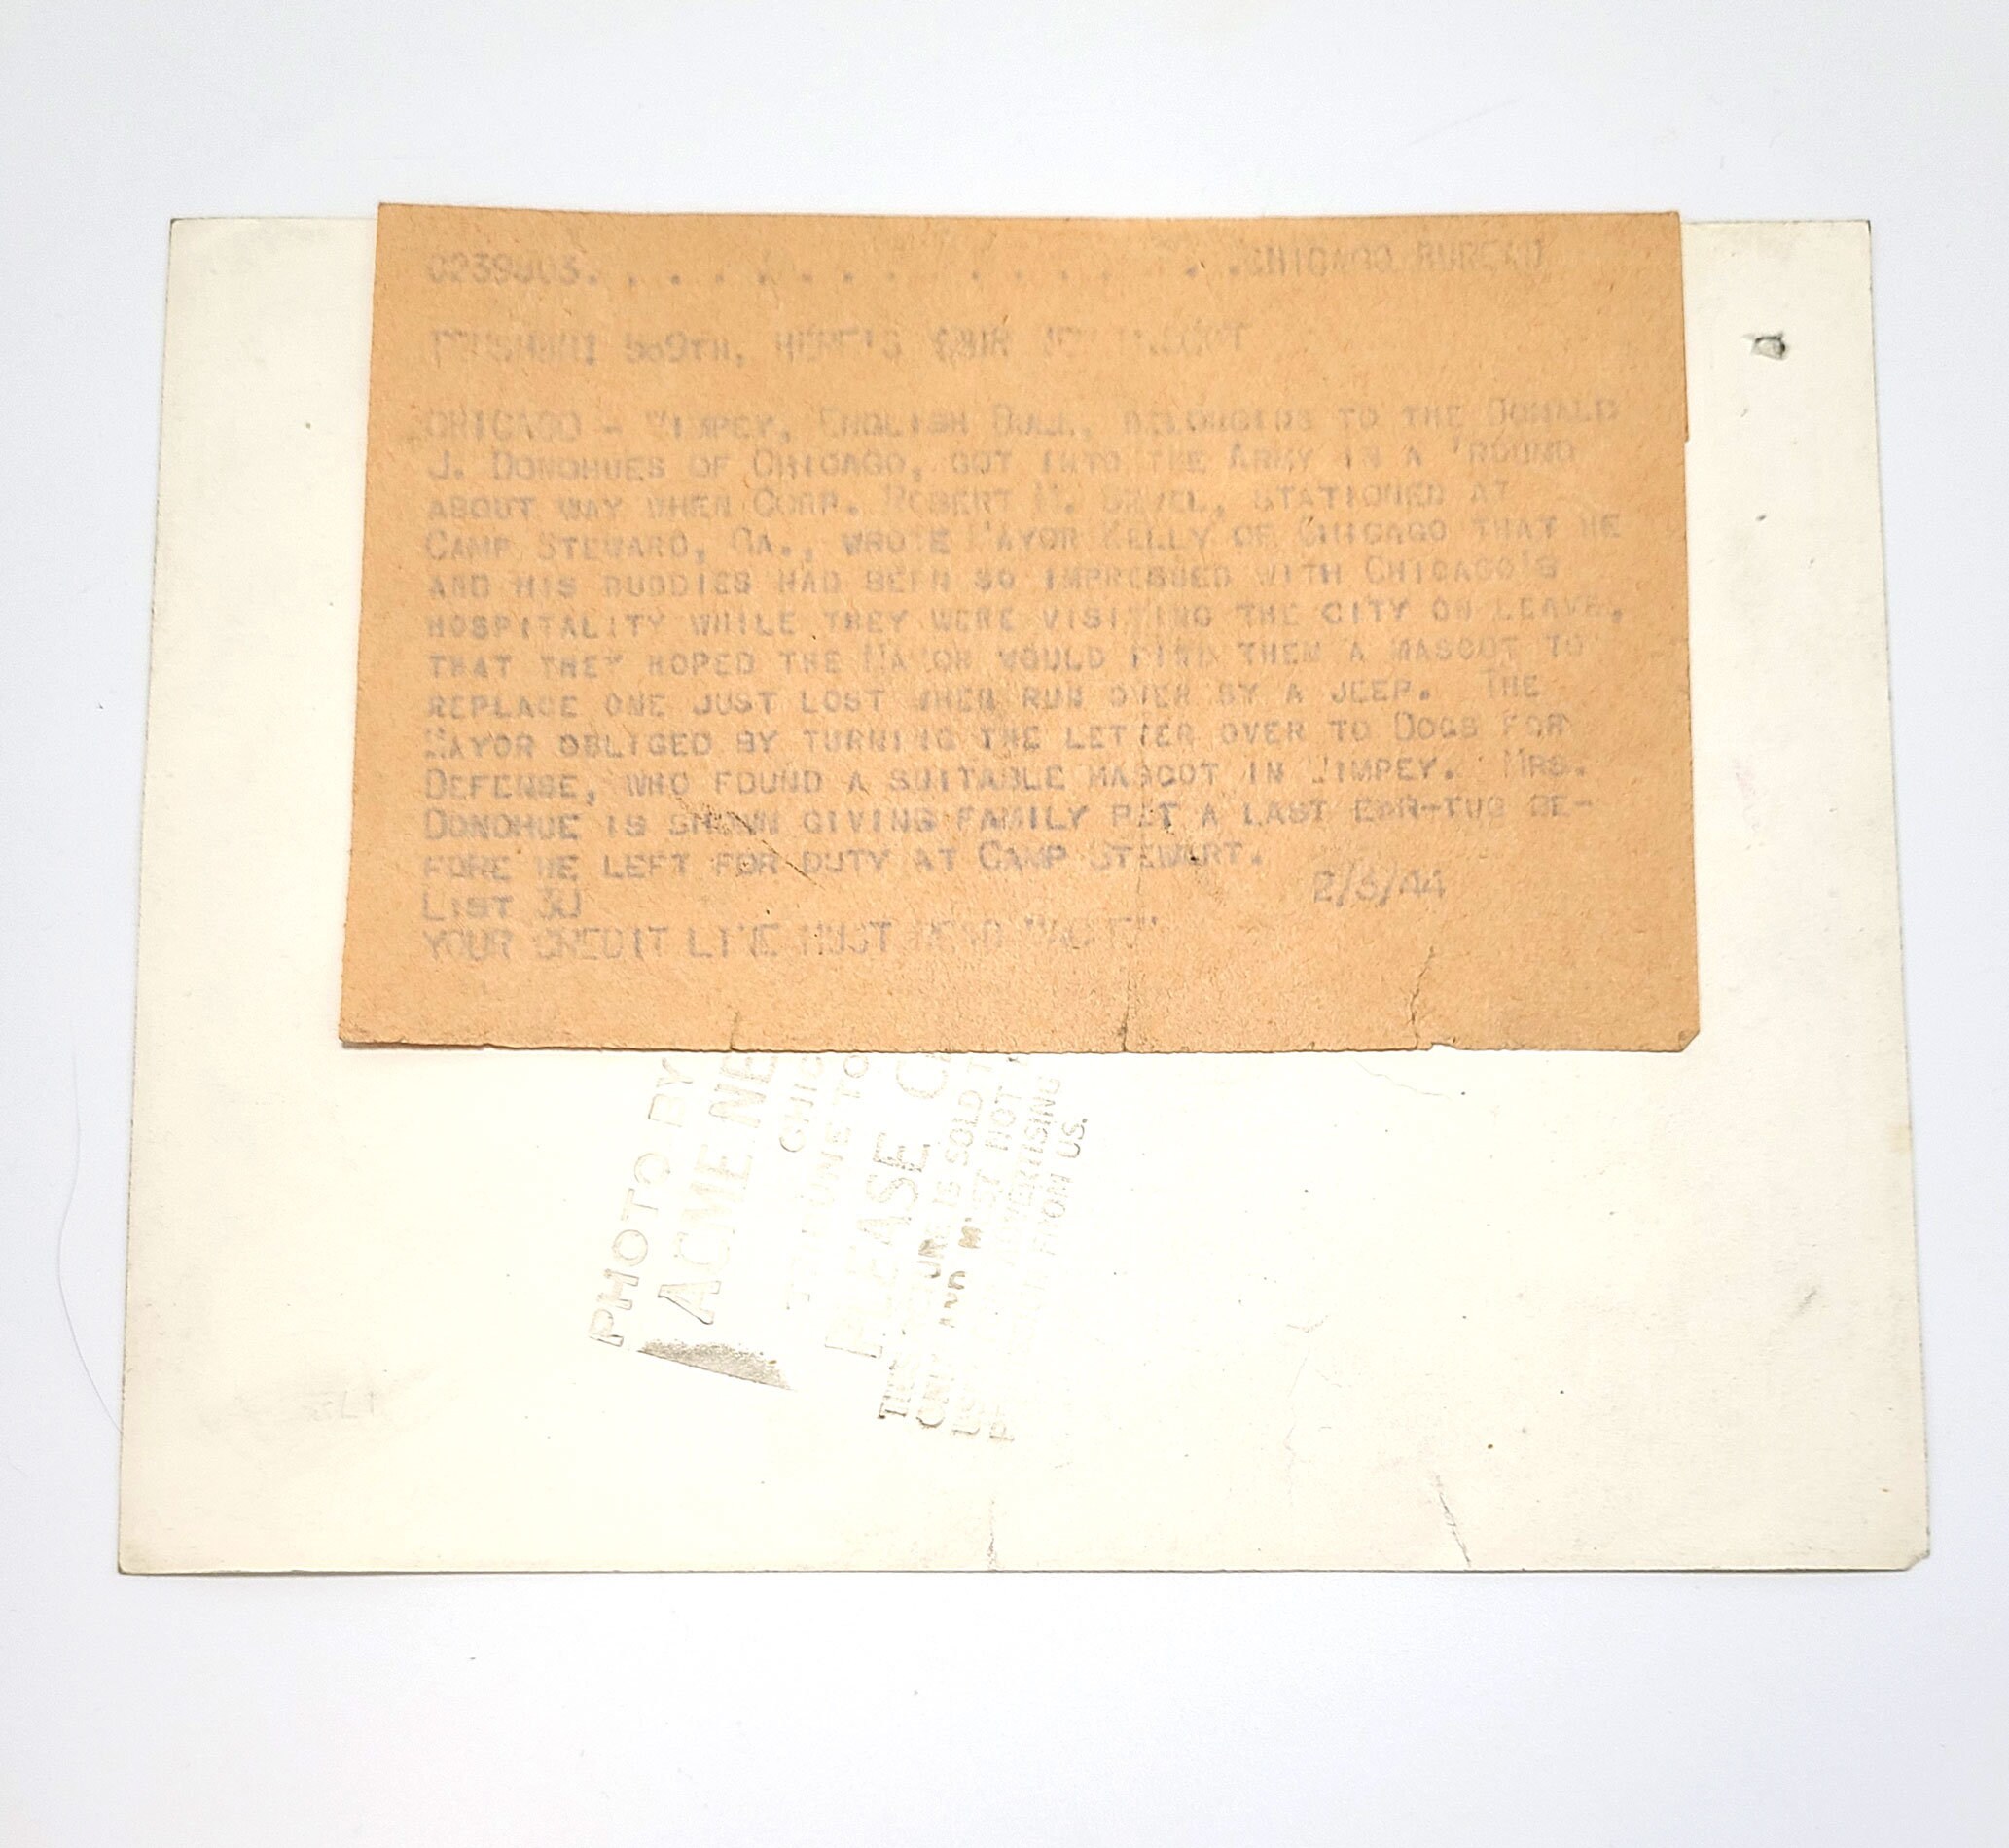 CHICAGO BUREAU
589TH, HERE'S YOUR NEW MASCOT
CHICAGO - WIMPEY, ENGLISH BULL, BELONGING TO THE DONALD
J. DONOHUES OF CHICAGO, GOT INTO THE ARMY IN A 'ROUND
ABOUT WAY WHEN CORP. ROBERT STATIONED AT
CAMP STEWARD, GA., WROTE MAYOR KELLY OF CHICAGO THAT HE
AND HIS BUDDIES HAD BEEN SO IMPRESSED WITH CHICAGO'S
HOSPITALITY WHILE THEY WERE VISITING THE CITY ON LEAVE,
THAT THEY HOPED THE MAYOR WOULD FIND THEM A MASCOT TO
REPLACE ONE JUST LOST WHEN RUN OVER BY A JEEP. THE
MAYOR OBLIGED BY TURNING THE LETTER OVER TO DOGS FOR
DEFENSE, WHO FOUND A SUITABLE MASCOT IN WIMPEY. MRS.
DONOHUE IS SHOWN GIVING FAMILY PET A LAST EAR-TUG BE-
FORE HE LEFT FOR DUTY AT CAMP STEWART.
LIST 2/3/44
YOUR CREDIT LINE MUST READ "ACME"
PHOTO BY
ACME NE
CHIC
TO
PLEASE
IS SOLD
NOT
ADVERTISING
FROM US.